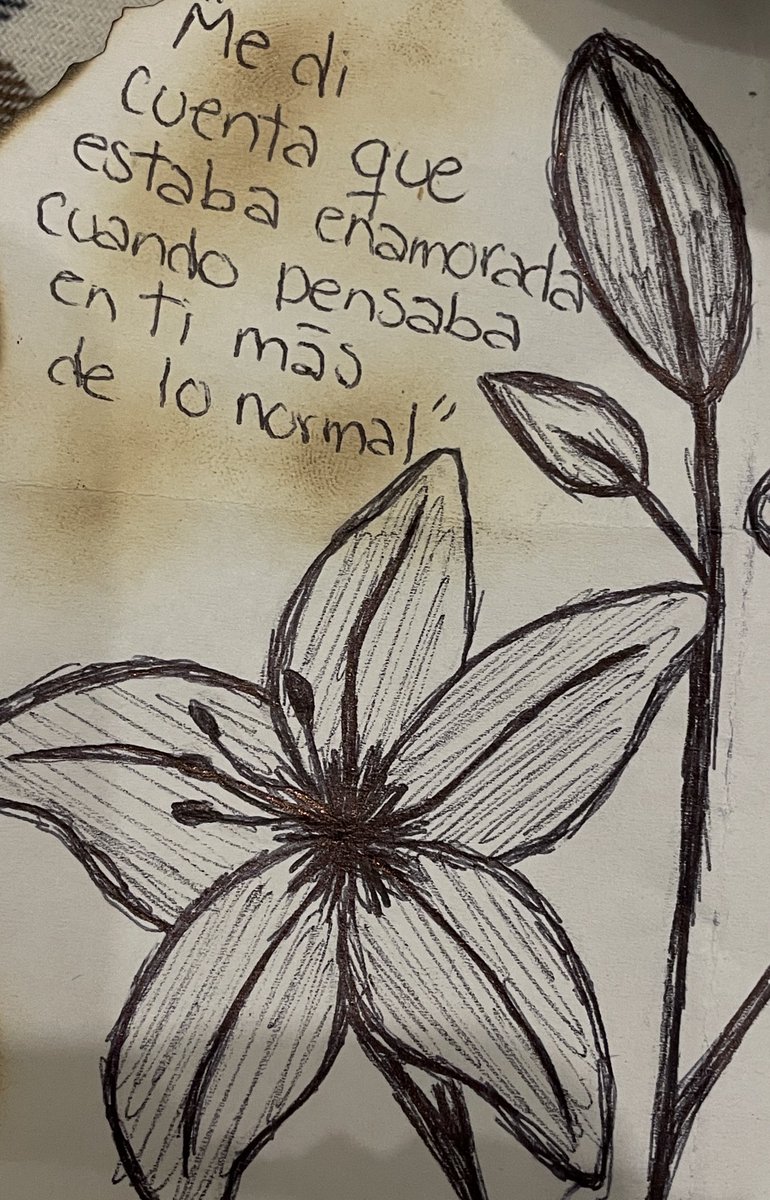 "Me di
cuenta que
estaba enamorada
cuando pensaba
en ti más
de lo normal"